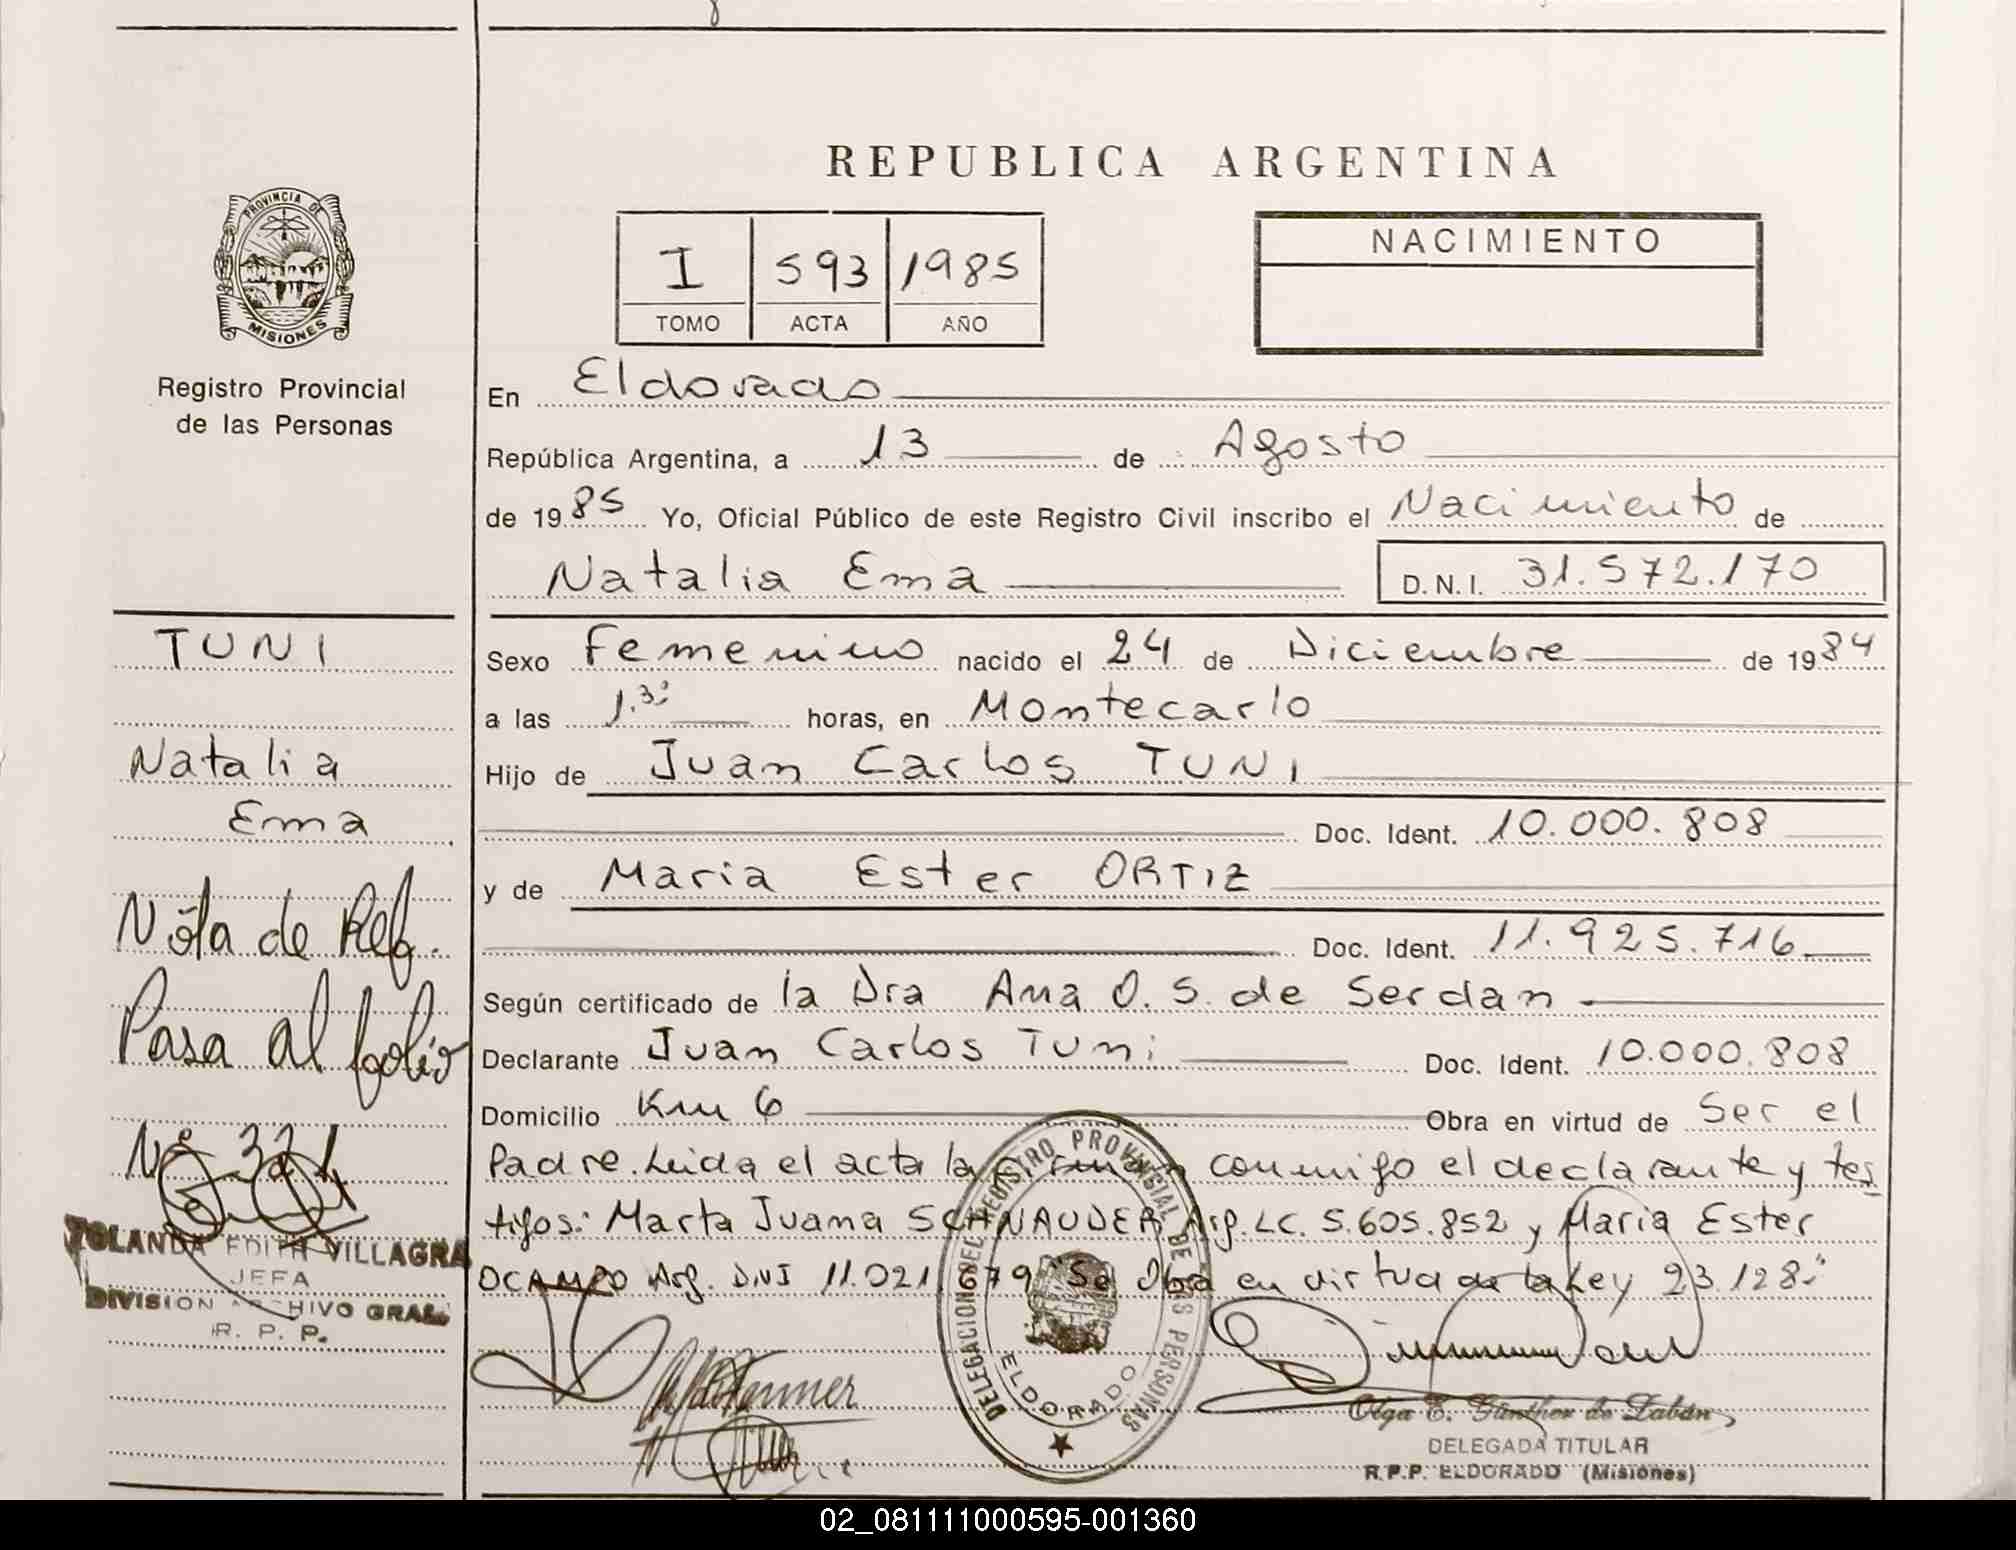 REPUBLICA ARGENTINA
PROVINCIA DE
MISIONES
Registro Provincial
de las Personas
I 593 1985
TOMO ACTA AÑO
NACIMIENTO
En Eldorado
República Argentina, a 13 de Agosto
de 1985 Yo, Oficial Público de este Registro Civil inscribo el Nacimiento de
Natalia Ema D.N.I. 31.572.170
TUNI
Natalia
Ema
Nota de Ref.
Pasa al folio
Nº 331
YOLANDA EDITH VILLAGRA
JEFA
DIVISION ARCHIVO GRAL.
R. P. P.
Sexo Femenino nacido el 24 de Diciembre de 1984
a las 1.30 horas, en Montecarlo
Hijo de Juan Carlos TUNI
Doc. Ident. 10.000.808
y de Maria Ester ORTIZ
Doc. Ident. 11.925.716
Según certificado de la Dra Ana O. S. de Serdan
Declarante Juan Carlos Tuni Doc. Ident. 10.000.808
Domicilio Km 6 Obra en virtud de Ser el
Padre. Leida el acta la firman conmigo el declarante y tes
tigos: Marta Juana SCHNAUDER Arg. LC. 5.605.852 y Maria Ester
OCAMPO Arg. DNI 11.021.679 "Se Obra en virtud de la Ley 23.128."
DELEGACION DEL REGISTRO PROVINCIAL DE LAS PERSONAS
ELDORADO
Olga E. Günther de Zabán
DELEGADA TITULAR
R.P.P. ELDORADO (Misiones)
02_081111000595-001360